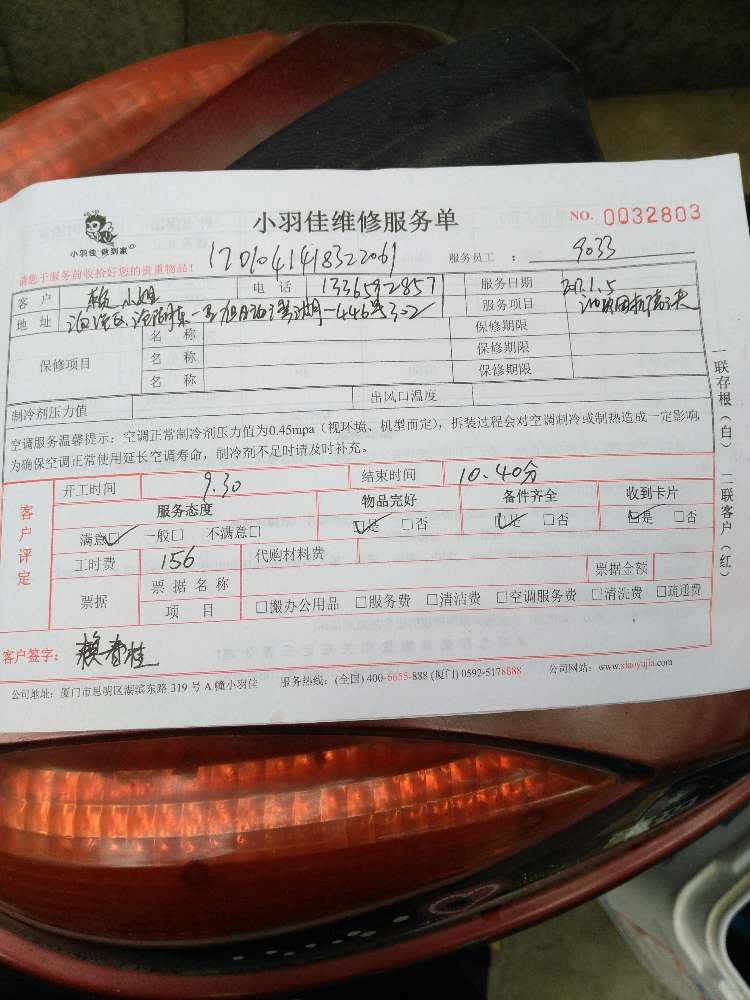 小羽佳 做到家
小羽佳维修服务单
NO. 0032803
请您于服务前收拾好您的贵重物品!
服务员工 : 9033
客 户 赖小姐 电 话 服务日期
地 址 服务项目
保修项目 名 称 保修期限
名 称 保修期限
名 称 保修期限
制冷剂压力值 出风口温度
空调服务温馨提示:空调正常制冷剂压力值为0.45mpa(视环境、机型而定),拆装过程会对空调制冷或制热造成一定影响
为确保空调正常使用延长空调寿命,制冷剂不足时请及时补充。
客户评定
开工时间 9.30 结束时间 10.40分
服务态度 物品完好 备件齐全 收到卡片
满意☑ 一般□ 不满意□ ☑是 □否 ☑是 □否 ☑是 □否
工时费 156 代购材料费
票据 票 据 名 称 票据金额
项 目 □搬办公用品 □服务费 □清洁费 □空调服务费 □清洗费 □疏通费
客户签字: 赖春桂
公司地址: 厦门市思明区湖滨东路 319 号 A 幢小羽佳 服务热线: (全国) 400-6655-888 (厦门) 0592-5178888 公司网站: www.xiaoyujia.com
一联存根(白) 二联客户(红)